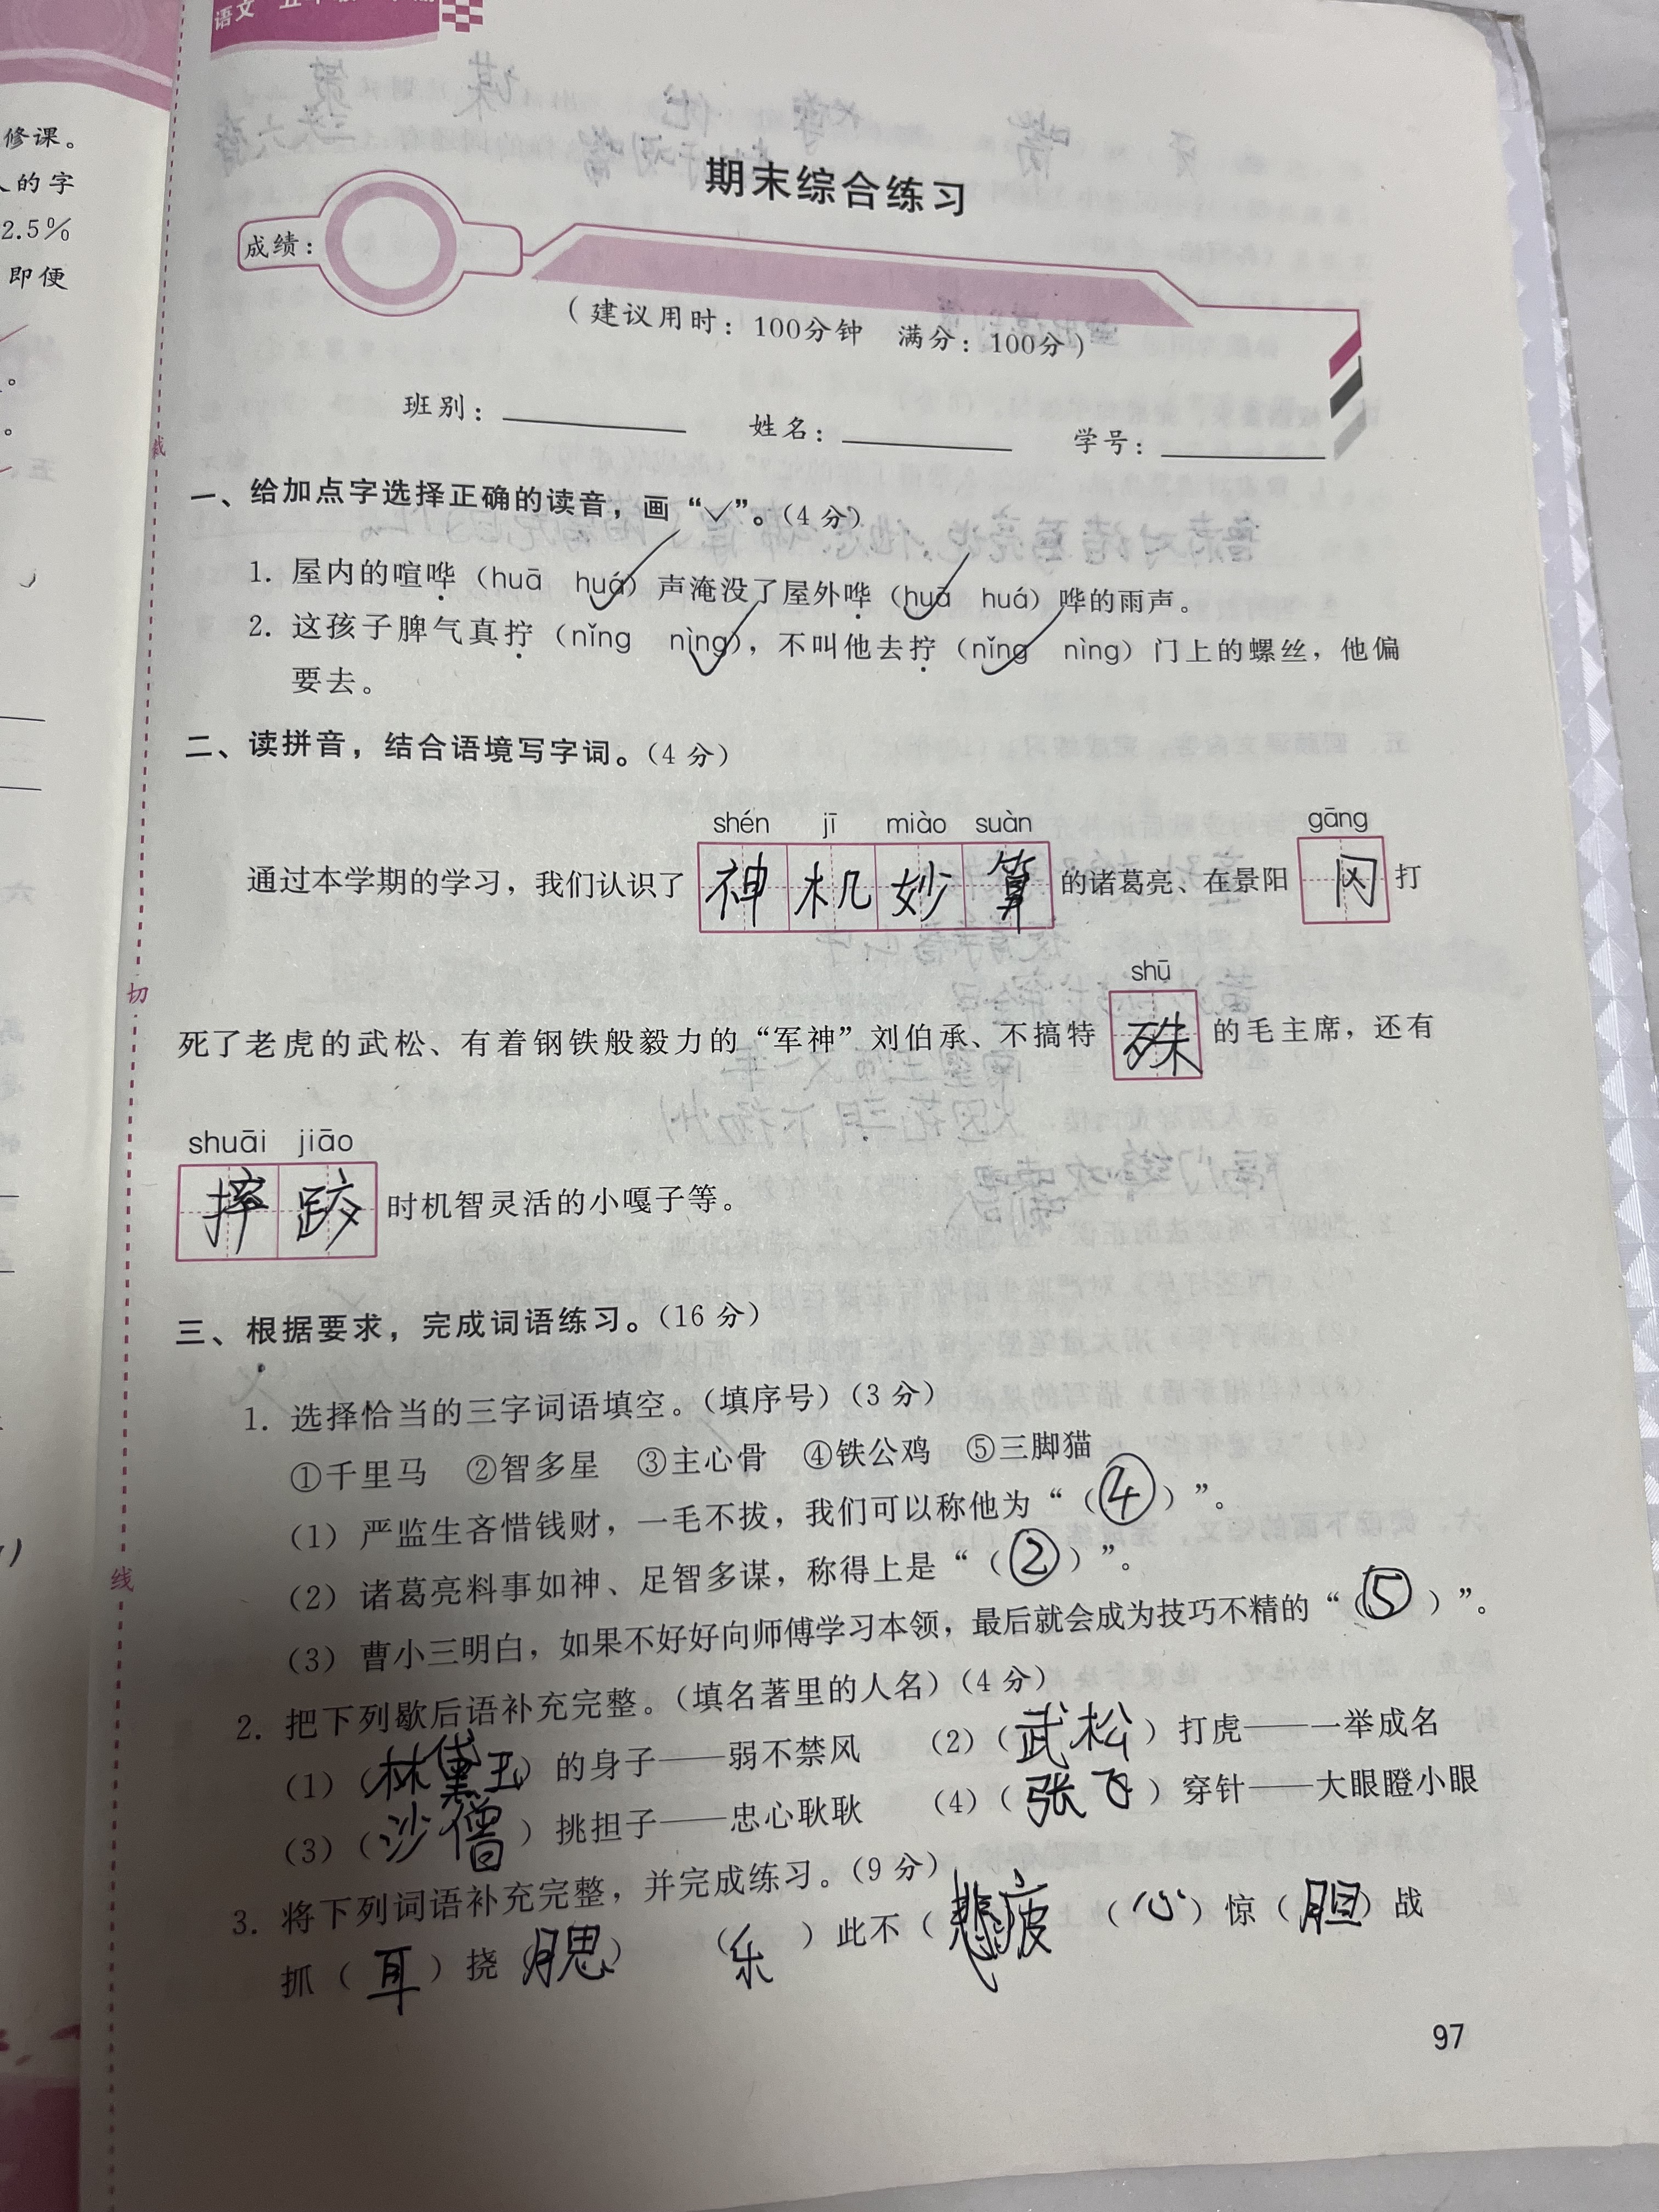 修课。
人的字
2.5%
即便
语文
期末综合练习
成绩：
（建议用时：100分钟 满分：100分）
班别：
姓名：
学号：
一、给加点字选择正确的读音，画“✓”。（4分）
1. 屋内的喧哗（huā huá）声淹没了屋外哗（huā huá）哗的雨声。
2. 这孩子脾气真拧（nǐng nìng），不叫他去拧（nǐng nìng）门上的螺丝，他偏
要去。
二、读拼音，结合语境写字词。（4分）
shén jī miào suàn gāng
通过本学期的学习，我们认识了神机妙算的诸葛亮、在景阳冈打
shū
死了老虎的武松、有着钢铁般毅力的“军神”刘伯承、不搞特殊的毛主席，还有
shuāi jiāo
摔跤时机智灵活的小嘎子等。
三、根据要求，完成词语练习。（16分）
1. 选择恰当的三字词语填空。（填序号）（3分）
①千里马 ②智多星 ③主心骨 ④铁公鸡 ⑤三脚猫
（1）严监生吝惜钱财，一毛不拔，我们可以称他为“（④）”。
（2）诸葛亮料事如神、足智多谋，称得上是“（②）”。
（3）曹小三明白，如果不好好向师傅学习本领，最后就会成为技巧不精的“（⑤）”。
2. 把下列歇后语补充完整。（填名著里的人名）（4分）
（1）（林黛玉）的身子——弱不禁风 （2）（武松）打虎——一举成名
（3）（沙僧）挑担子——忠心耿耿 （4）（张飞）穿针——大眼瞪小眼
3. 将下列词语补充完整，并完成练习。（9分）
抓（耳）挠（腮） （乐）此不（疲） （心）惊（胆）战
97
裁
切
线